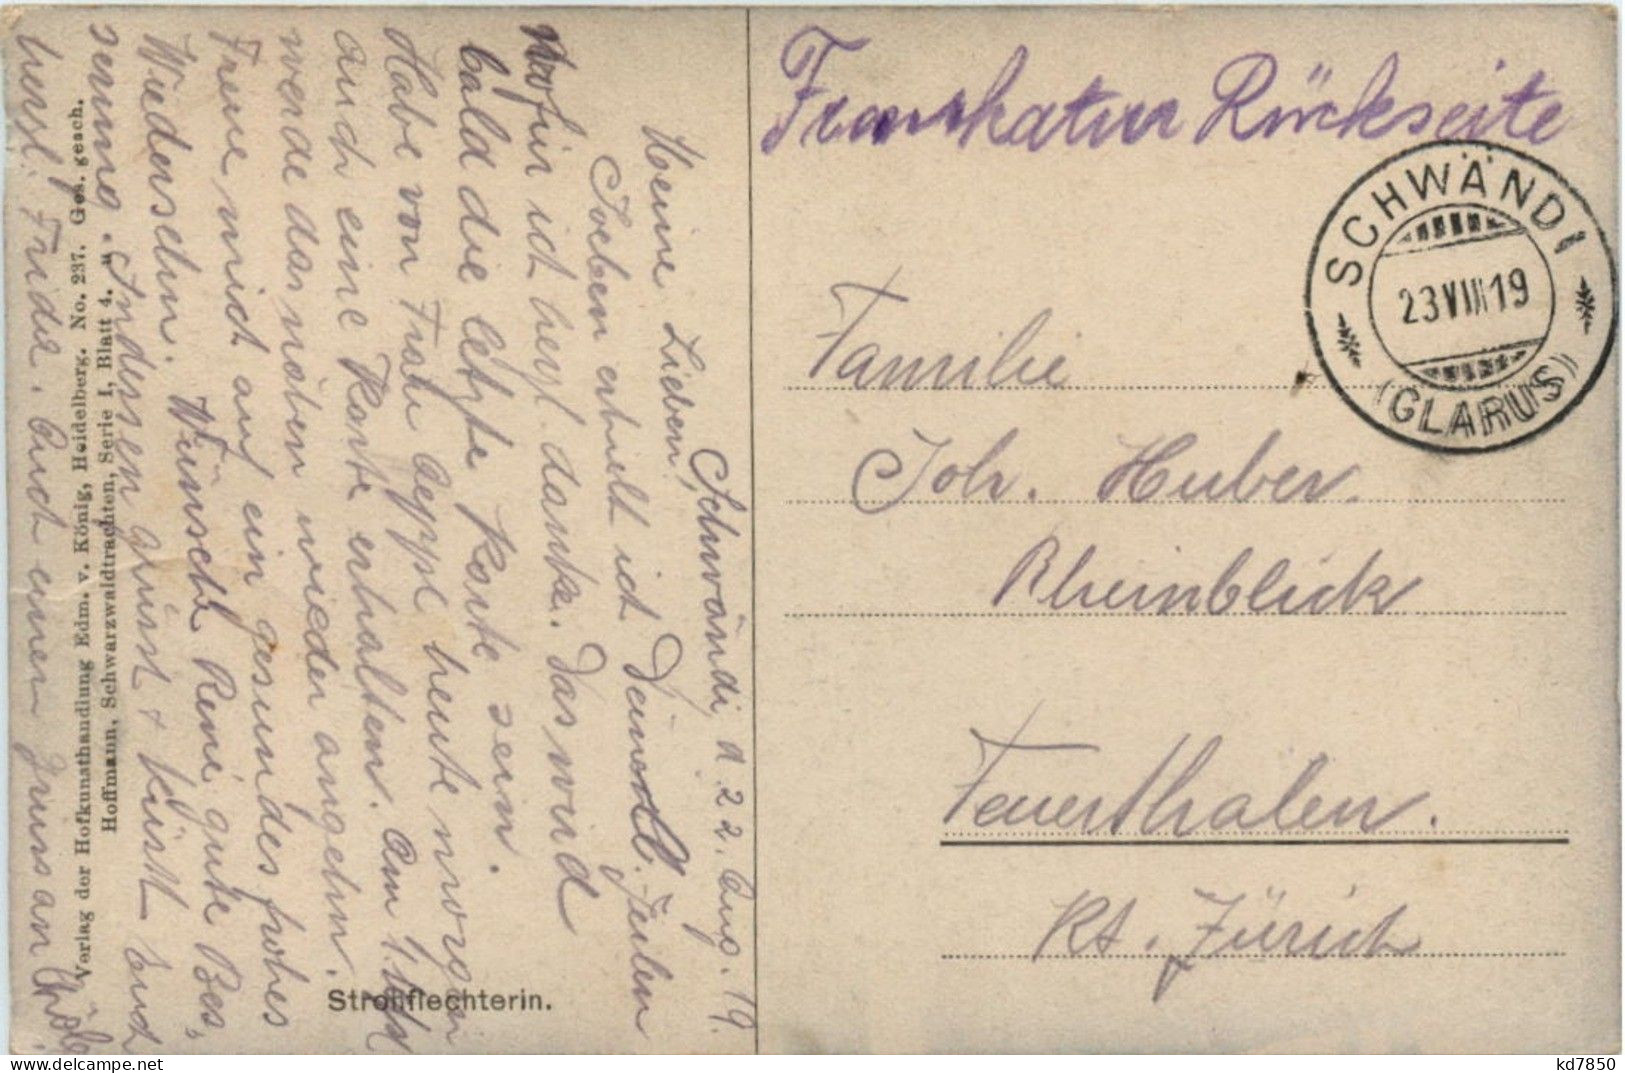 Frankatur Rückseite
SCHWÄNDI
23 VIII 19
(GLARUS)
Familie
Joh. Huber.
Rheinblick
Feuerthalen.
Kt. Zürich
Schwändi, d. 22. Aug. 19.
Meine Lieben!
Soeben erhielt ich Deine Zeilen
wofür ich herzl. danke. Das wird
bald die letzte Karte sein.
Habe von Frau heute morgen
auch eine Karte erhalten. Am 1.
werde dann oben wieder angehn.
Freue mich auf ein gesundes frohes
Wiedersehn. Wünsche René gute Bes-
serung. Indessen grüsst + küsst Euch
herzl. Frida. Auch einen Gruss an
Strohflechterin.
Verlag der Hofkunsthandlung Edm. v. König, Heidelberg. No. 237. Ges. gesch.
Hoffmann, Schwarzwaldtrachten, Serie I, Blatt 4.
kd7850